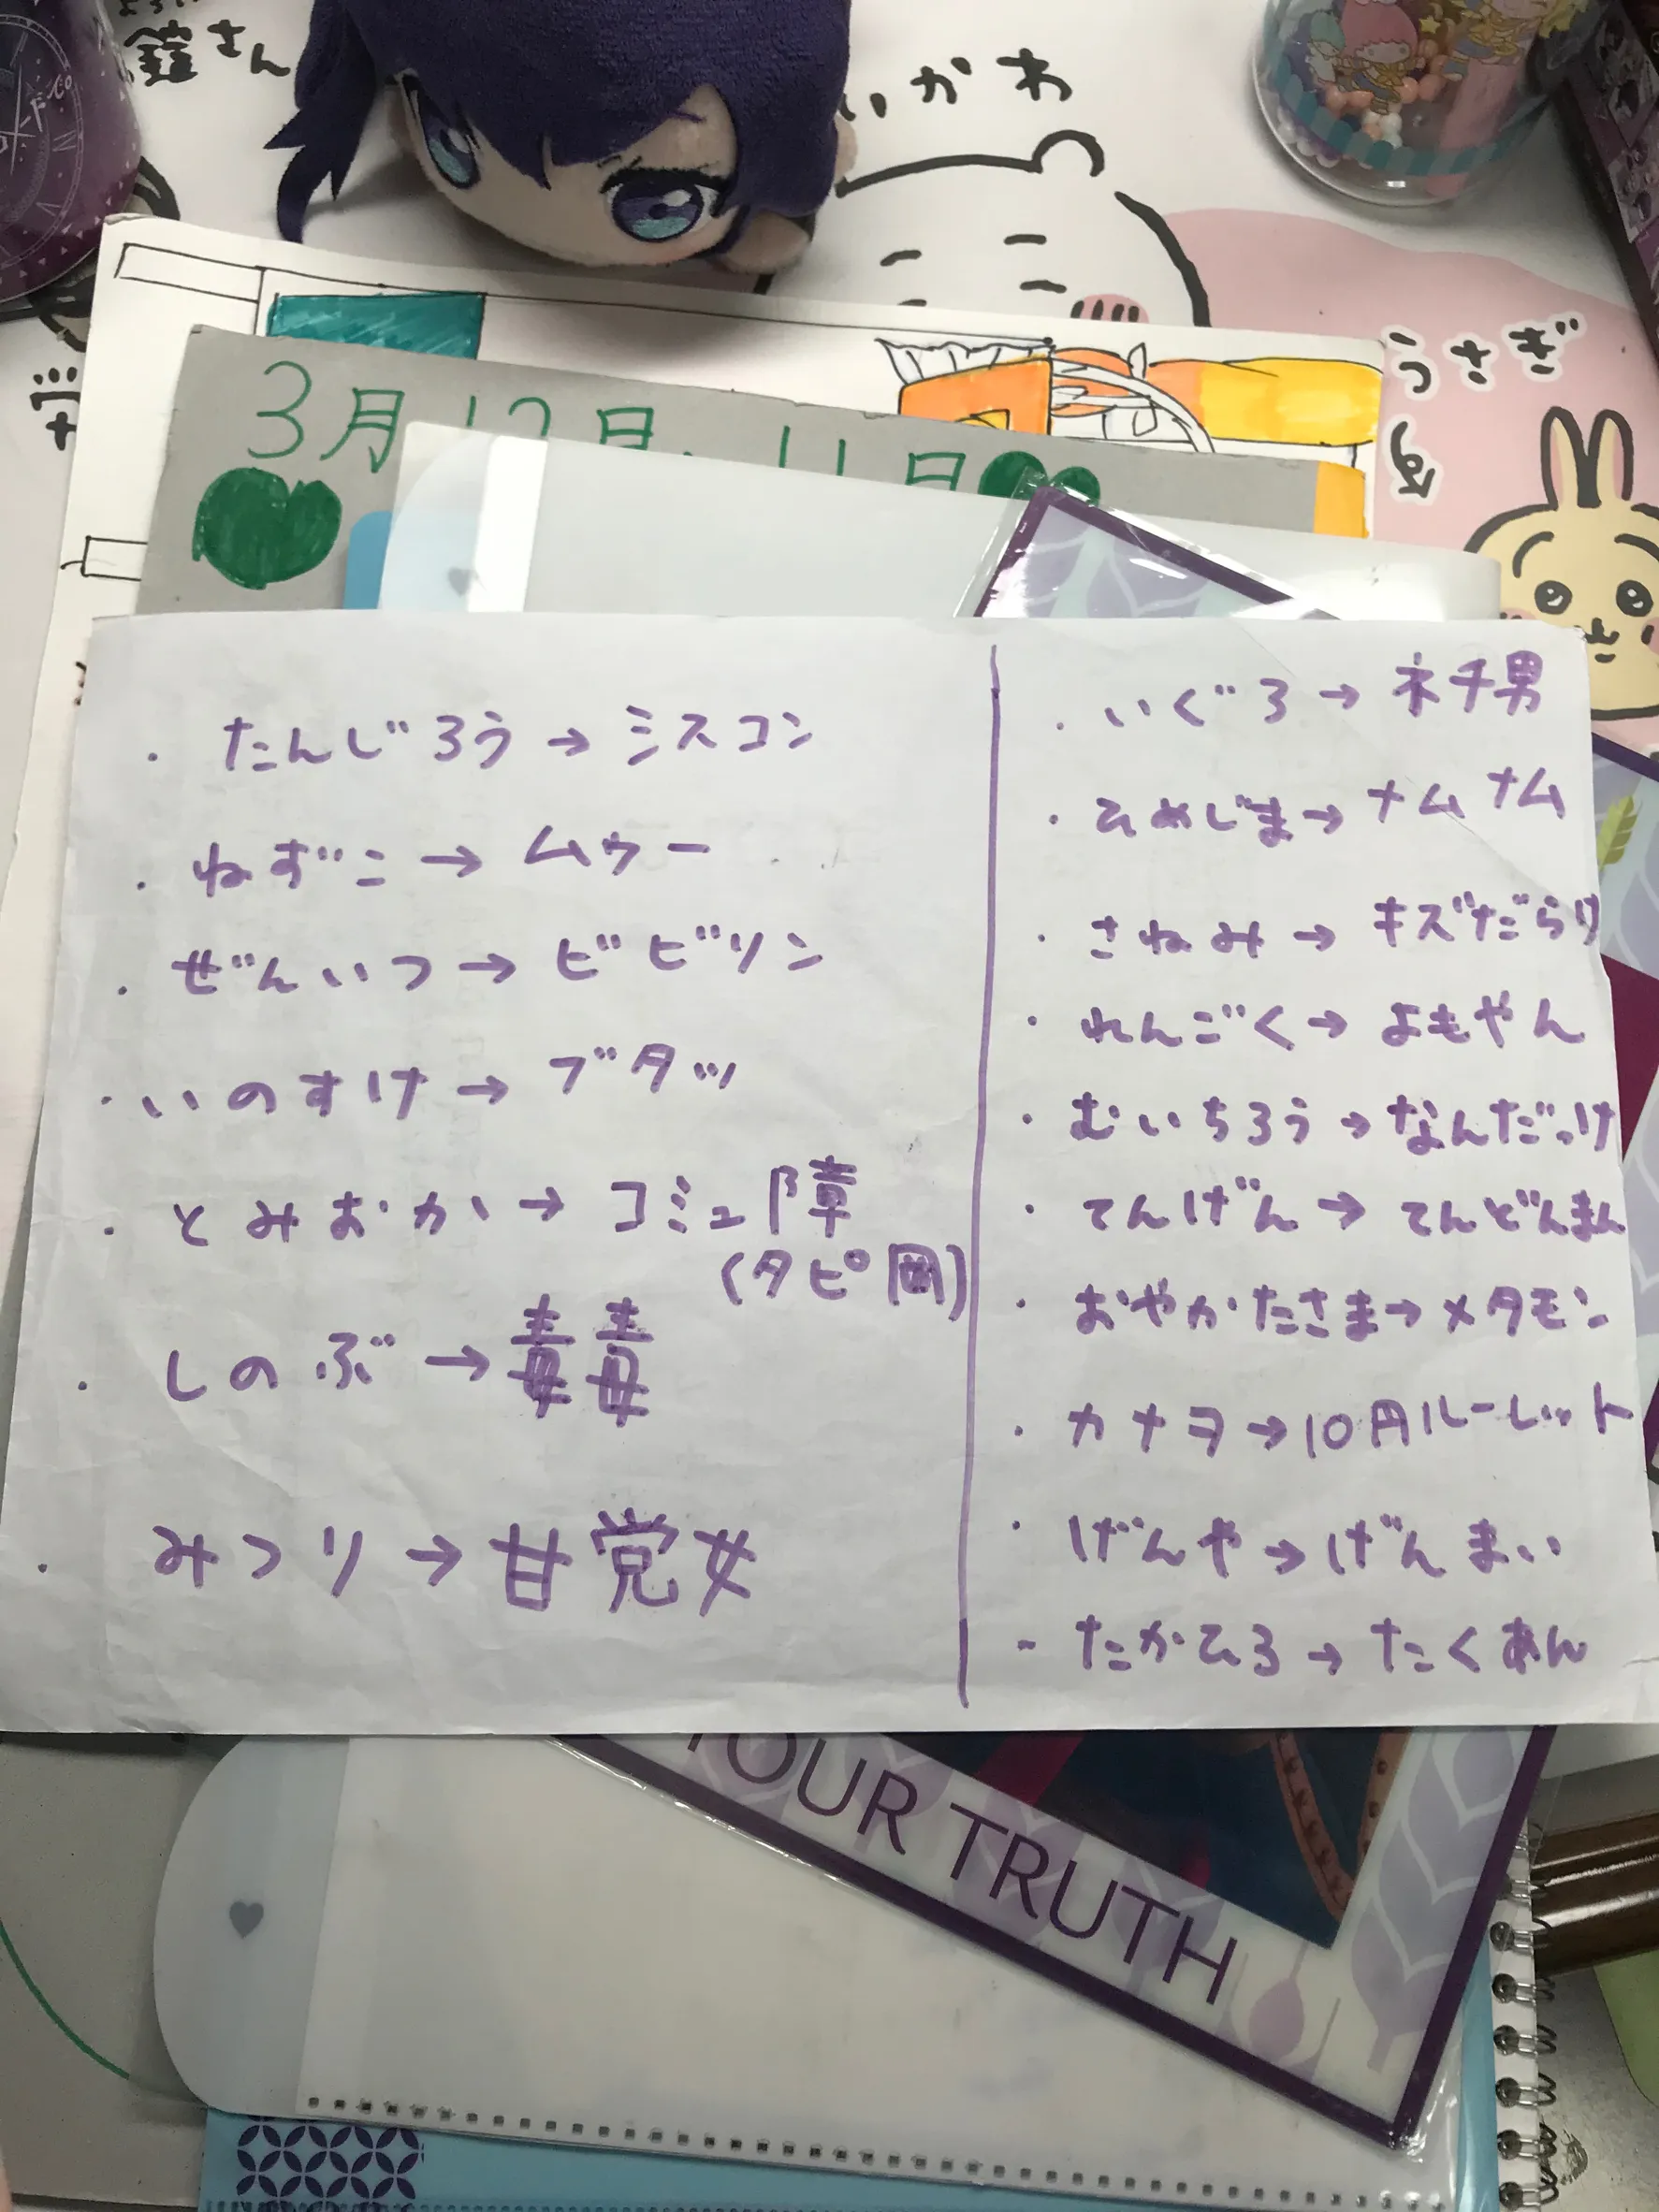 鎧さん
いかわ
うさぎ
3月12日、11日
・たんじろう→シスコン
・ねずこ→ムゥー
・ぜんいつ→ビビリン
・いのすけ→ブタッ
・とみおか→コミュ障
(タピ岡)
・しのぶ→毒毒
・みつり→甘党女
・いぐろ→ネチ男
・ひめじま→ナムナム
・さねみ→キズだらけ
・れんごく→よもやん
・むいちろう→なんだっけ
・てんげん→てんどんまん
・おやかたさま→メタモン
・カナヲ→10円ルーレット
・げんや→げんまい
・たかひろ→たくあん
YOUR TRUTH